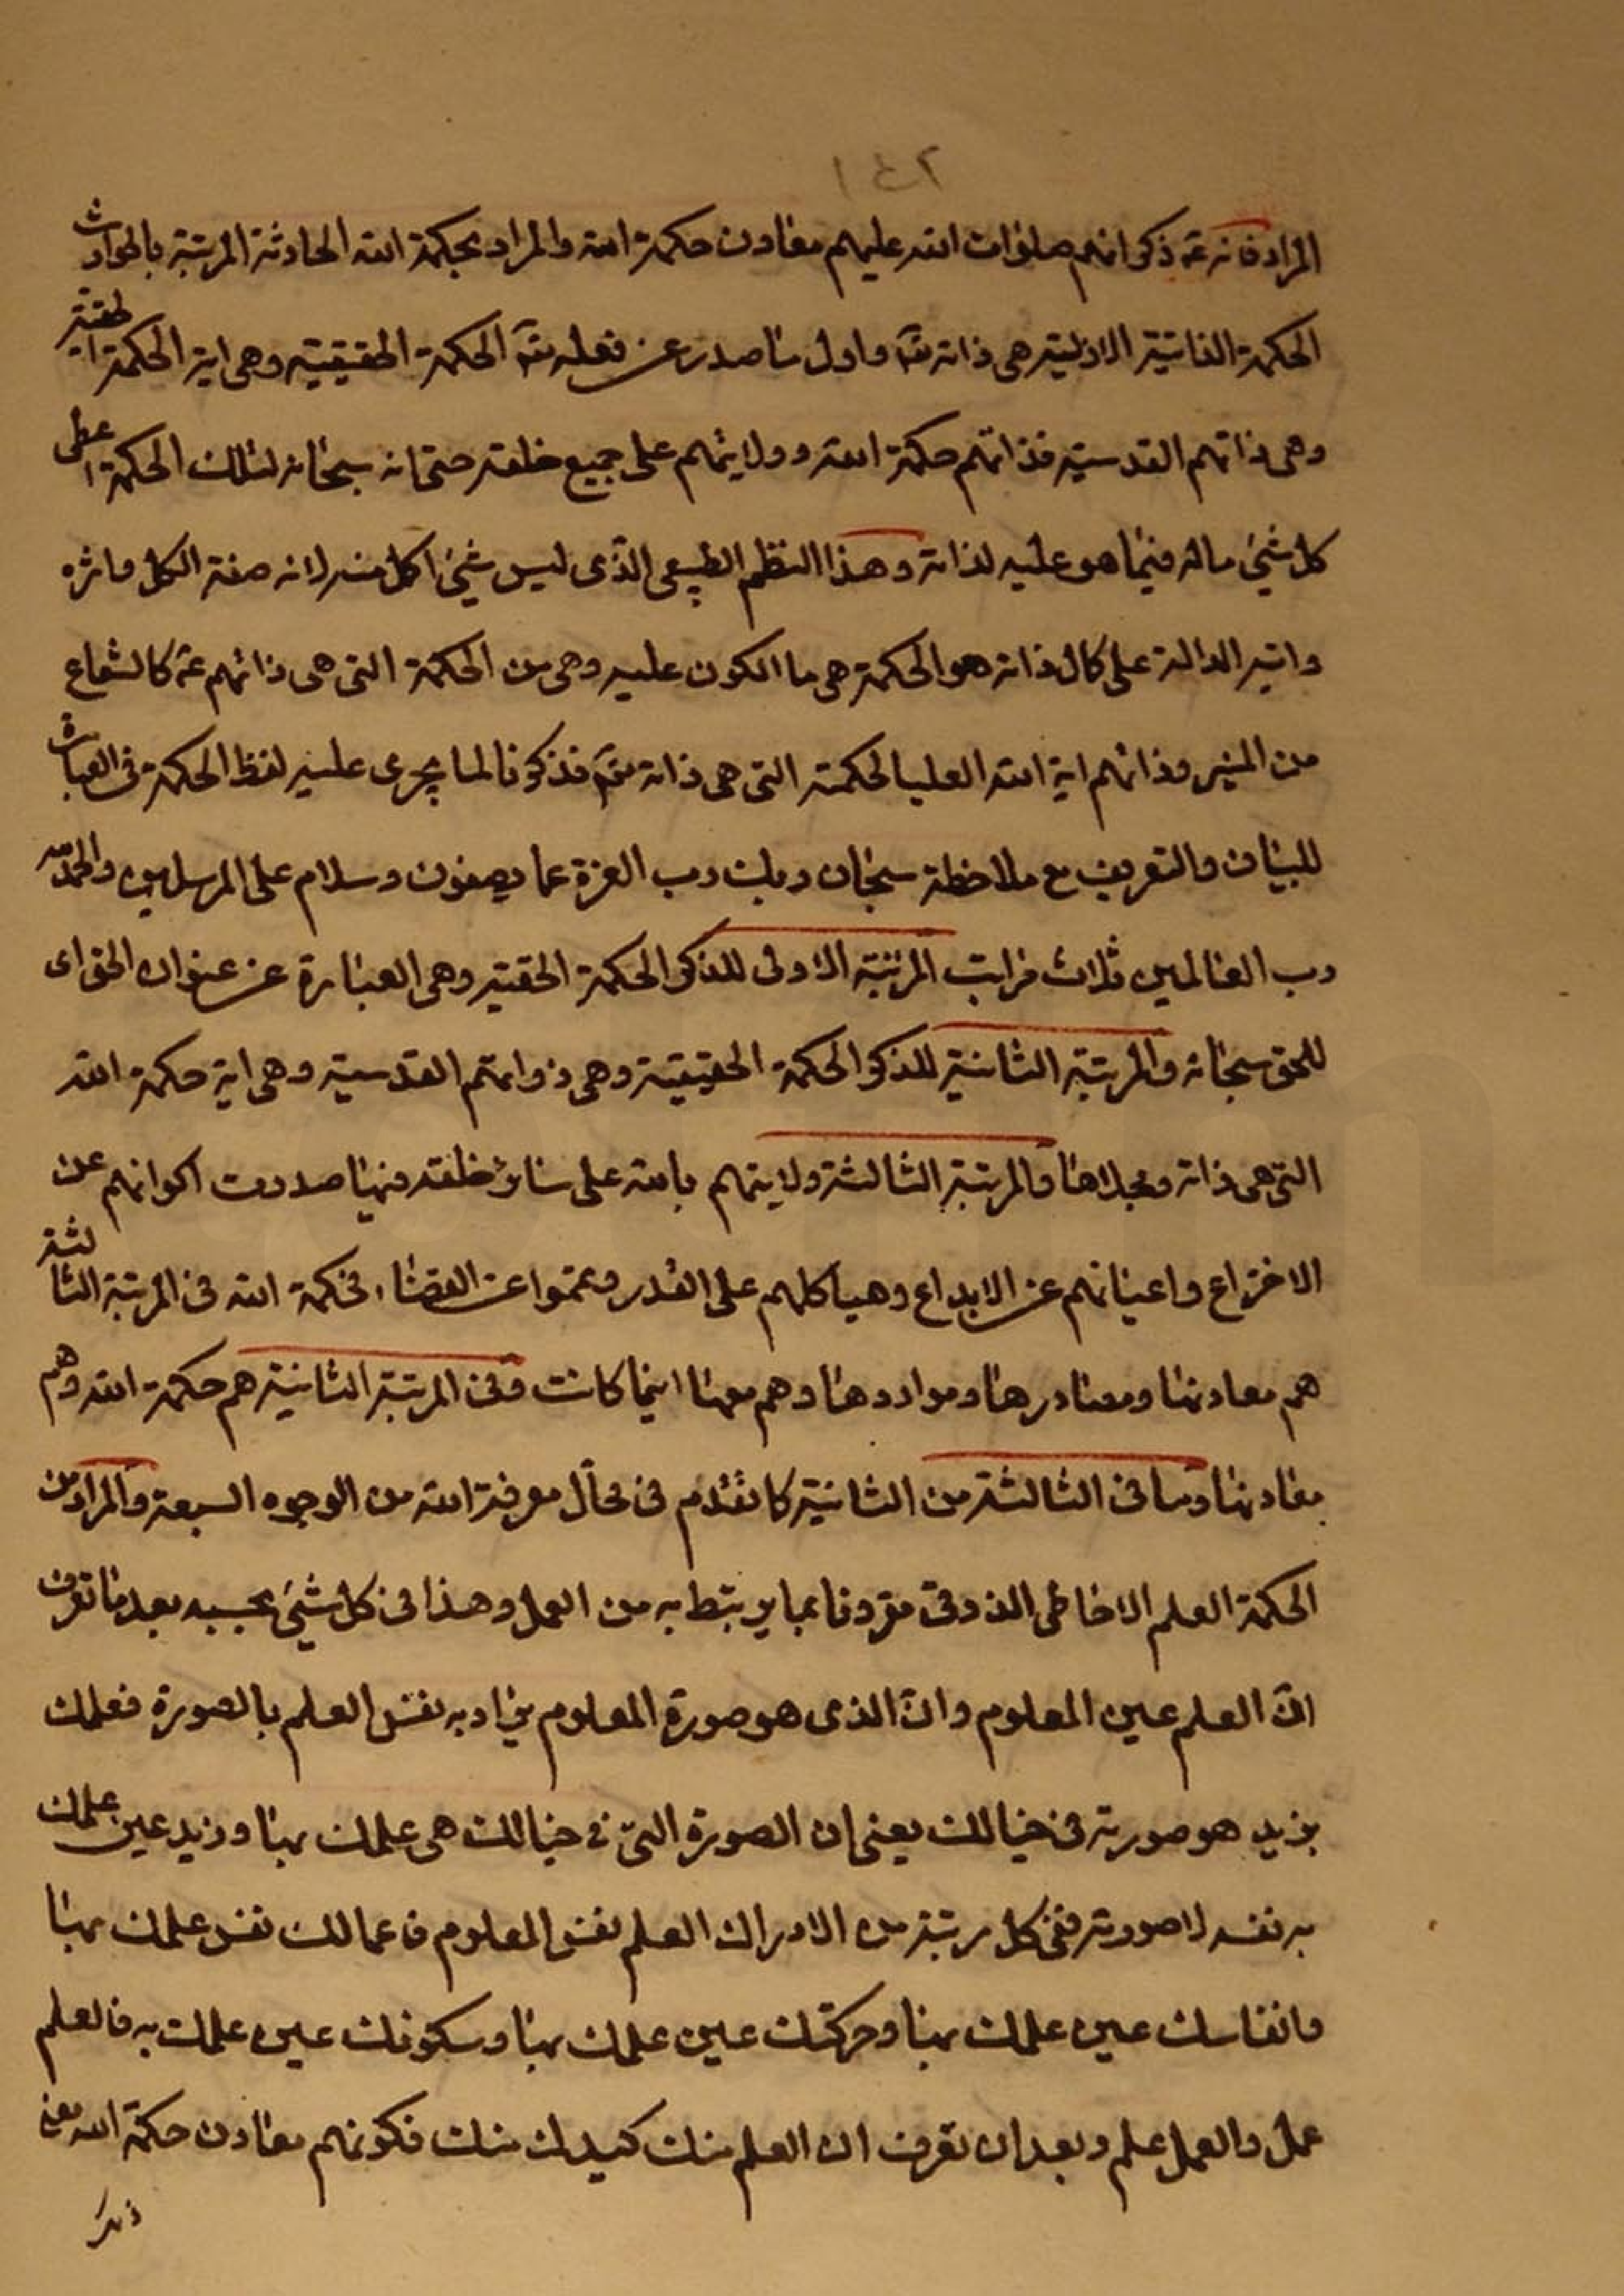 ١٤٢
المراد فانه ع ذكر انهم صلوات الله عليهم معادن حكمة الله والمراد بحكمة الله الحادثة المرتبة بالحوادث
الحكمة الذاتية الازلية هى ذاته تع واول ما صدر عن فعله تع الحكمة الحقيقية وهى اية الحكمة الحقية
وهى ذاتهم القدسية فذاتهم حكمة الله وولايتهم على جميع خلقه حتى انه سبحانه لتلك الحكمة اعطى
كل شئ ماله فيما هو عليه لذاته وهذا النظم الطبيعى الذى ليس شئ اكمل منه لانه صفة الكل واثره
وايته الدالة على كمال ذاته هو الحكمة هى ما الكون عليه وهى من الحكمة التى هى ذاتهم ع كالشعاع
من المنير وذاتهم اية الله العليا لحكمته التى هى ذاته تع فذكرنا لما يجرى عليه لفظ الحكمة فى العبارة
للبيان والتعريف مع ملاحظة سبحان ربك رب العزة عما يصفون وسلام على المرسلين والحمد لله
رب العالمين ثلاث مراتب المرتبة الاولى للذكر الحكمة الحقية وهى العبارة عن عنوان الحق اى
للحق سبحانه والمرتبة الثانية للذكر الحكمة الحقيقية وهى ذواتهم القدسية وهى اية حكمة الله
التى هى ذاته ومجلاها والمرتبة الثالثة ولايتهم بالله على سائر خلقه فيها صدرت اكوانهم عن
الاختراع واعيانهم عن الابداع وهياكلهم على القدر وتمموا عن القضاء فحكمة الله فى المرتبة الثالثة
هم معادنها ومصادرها ومواردها وهم معها اينما كانت وفى المرتبة الثانية هم حكمة الله وهم
معادنها وما فى الثالثة من الثانية كما تقدم فى محال معرفة الله من الوجوه السبعة والمراد من
الحكمة العلم الاحاطى الذوقى مقرونا بما يرتبط به من العمل وهذا فى كل شئ بحسبه بعد ما تعرف
ان العلم عين المعلوم وان الذى هو صورة المعلوم يراد به نفس العلم بالصورة فعلمك
بزيد هو صورته فى خيالك يعنى ان الصورة التى فى خيالك هى علمك بها وزيد عين علمك
به نفسه لا صورته ففى كل رتبة من الادراك العلم نفس المعلوم فاعمالك نفس علمك بها
وانفاسك عين علمك بها وحركتك عين علمك بها وسكونك عين علمك به فالعلم
عمل والعمل علم وبعد ان تعرف ان العلم منك كيدك منك فكونهم معادن حكمة الله يعنى